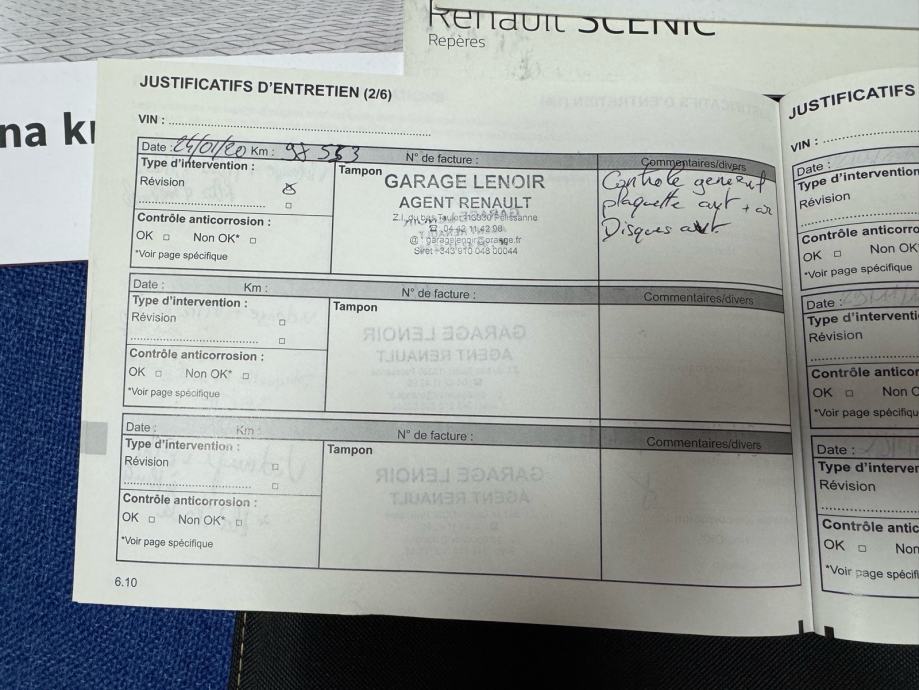 Renault SCENIC
Repères
na k
JUSTIFICATIFS D'ENTRETIEN (2/6)
VIN :
Date : 24/01/20 Km : 98 553 N° de facture : Commentaires/divers
Type d'intervention :
Révision
Contrôle anticorrosion :
OK Non OK*
*Voir page spécifique
Tampon
GARAGE LENOIR
AGENT RENAULT
Z.I. du bas Taulet 13330 Pélissanne
04 42 11 42 98
@ : garagelenoir@orange.fr
Siret 343 910 048 00044
Controle general
plaquette avt + ar
Disques avt
Date : Km : N° de facture : Commentaires/divers
Type d'intervention :
Révision
Contrôle anticorrosion :
OK Non OK*
*Voir page spécifique
Tampon
Date : Km : N° de facture : Commentaires/divers
Type d'intervention :
Révision
Contrôle anticorrosion :
OK Non OK*
*Voir page spécifique
Tampon
6.10
JUSTIFICATIFS
VIN :
Date :
Type d'intervention
Révision
Contrôle anticorro
OK Non OK
*Voir page spécifiqu
Date :
Type d'interventi
Révision
Contrôle anticor
OK Non O
*Voir page spécifi
Date :
Type d'interver
Révision
Contrôle antic
OK Non
*Voir page spécifi